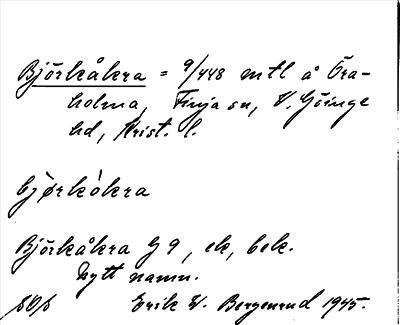 Björkåkra = 9/448 mtl å Öra-
holma, Finja sn, V. Göinge
hd, Krist. l.
bjørkòkra
Björkåkra G 9, ek, bok.
Nytt namn.
Erik W. Bergenrud 1945.